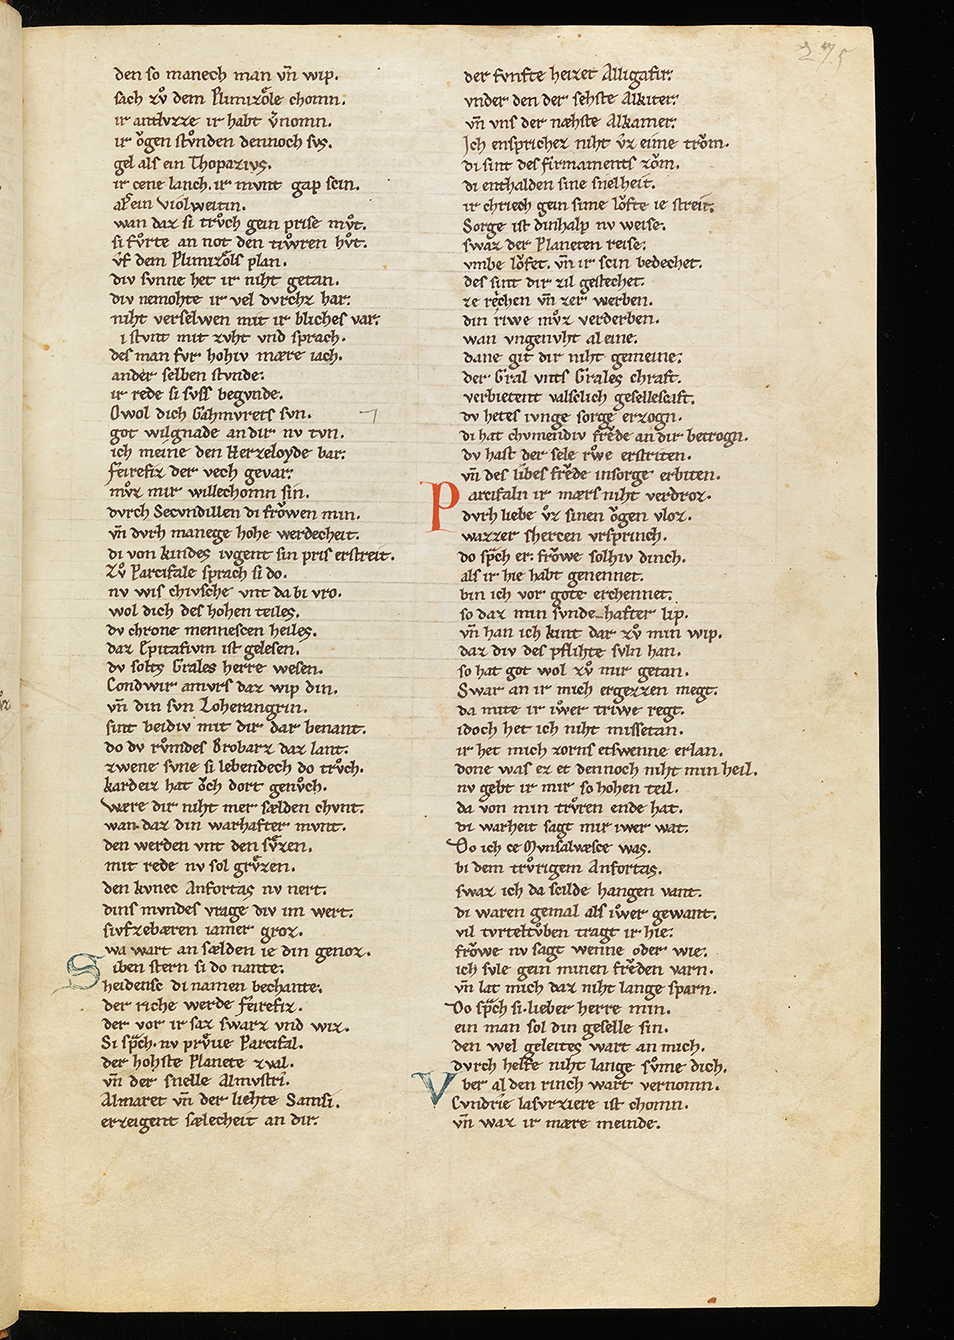 275
den so manech man vn̄ wip.
sach zvͦ dem Plimizoͤle chomn.
ir antlvzze ir habt v̄nomn.
ir oͮgen stvͦnden dennoch svs.
gel als ein Thopazivs.
ir cene lanch. ir mvnt gap scin.
als ein violweitin.
wan daz si trvͦch gein prise mvͦt.
si fvͦrte an not den tivͦren hvͦt.
vf dem Plimizoͤls plan.
div svnne het ir niht getan.
div nemohte ir vel dvrchz har.
niht verselwen mit ir bliches var.
i stvnt mit zvht vnd sprach.
des man fvr hohiv mære iach.
ander selben stvnde.
ir rede si svss begvnde.
Owol dich Gahmvrets svn.
got wil gnade an dir nv tvn.
ich meine den Herzeloyde bar.
feirefiz der vech gevar.
mvͦz mir willechomn sin.
dvrch Secvndillen di froͮwen min.
vn̄ dvrh manege hohe werdecheit.
di von kindes ivgent sin pris erstreit.
Zvͦ Parcifale sprach si do.
nv wis chivsche vnt da bi vro.
wol dich des hohen teiles.
dv chrone mennescen heiles.
daz Epitafivm ist gelesen.
dv solts Grales herre wesen.
Condwir amvrs daz wip din.
vn̄ din svn Loherangrin.
sint beidiv mit dir dar benant.
do dv rvͦmdes Brobarz daz lant.
zwene svne si lebendech do trvͦch.
kardeiz hat oͮch dort genvͦch.
Wære dir niht mer sælden chvnt.
wan daz din warhafter mvnt.
den werden vnt den svͤzen.
mit rede nv sol grvͤzen.
den kvnec Anfortas nv nert.
dins mvndes vrage div im wert.
sivfzebæren iamer groz.
wa wart an sælden ie din genoz.
Siben stern si do nante.
heidensc di namen bechante.
der riche werde feirefiz.
der vor ir saz swarz vnd wiz.
Si sp̄ch. nv prvͤue Parcifal.
der hohste Planete zval.
vn̄ der snelle Almvstri.
Almaret vn̄ der liehte Samsi.
erzeigent sælecheit an dir.
der fvnfte heizet Alligafir.
vnder den der sehste Alkiter.
vn̄ vns der næhste Alkamer.
Jch ensprichez niht vz eime troͮm.
di sint des firmaments zoͮm.
di enthalden sine snelheit.
ir chriech gein sime loͮfte ie streit.
Sorge ist dinhalp nv weise.
swaz der Planeten reise.
vmbe loͮfet. vn̄ ir scin bedechet.
des sint dir zil gestechet.
ze rechen vn̄ zer werben.
din riwe mvͦz verderben.
wan vngenvht al eine.
dane git dir niht gemeine.
der Gral vnts Grales chraft.
verbietent valslich gesellescaft.
dv hetes ivnge sorge erzogn.
di hat chvmendiv frͤde an dir betrogn.
dv hast der sele rvͦwe erstriten.
vn̄ des libes frͤde insorge erbiten.
Parcifaln ir mærs niht verdroz.
dvrh liebe vz sinen oͮgen vloz.
wazzer shercen vrsprinch.
do sp̄ch er. froͮwe solhiv dinch.
als ir hie habt genennet.
bin ich vor gote erchennet.
so daz min svnde hafter lip.
vn̄ han ich kint dar zvͦ min wip.
daz div des pflihte svln han.
so hat got wol zvͦ mir getan.
Swar an ir mich ergezzen megt.
da mite ir iwer triwe regt.
idoch het ich niht missetan.
ir het mich zorns etswenne erlan.
done was ez et dennoch niht min heil.
nv gebt ir mir so hohen teil.
da von min trvͦren ende hat.
di warheit sagt mir iwer wat.
Do ich ce Mvnsalvæsce was.
bi dem trvͦrigem Anfortas.
swaz ich da scilde hangen vant.
di waren gemal als iwer gewant.
vil tvrteltvͦben tragt ir hie.
froͮwe nv sagt wenne oder wie.
ich svle gein minen frͤden varn.
vn̄ lat mich daz niht lange sparn.
Do sp̄ch si. lieber herre min.
ein man sol din geselle sin.
den wel geleites wart an mich.
dvrch helfe niht lange svͦme dich.
Vber al den rinch wart vernomn.
Cvndrie lasvrziere ist chomn.
vn̄ waz ir mære meinde.